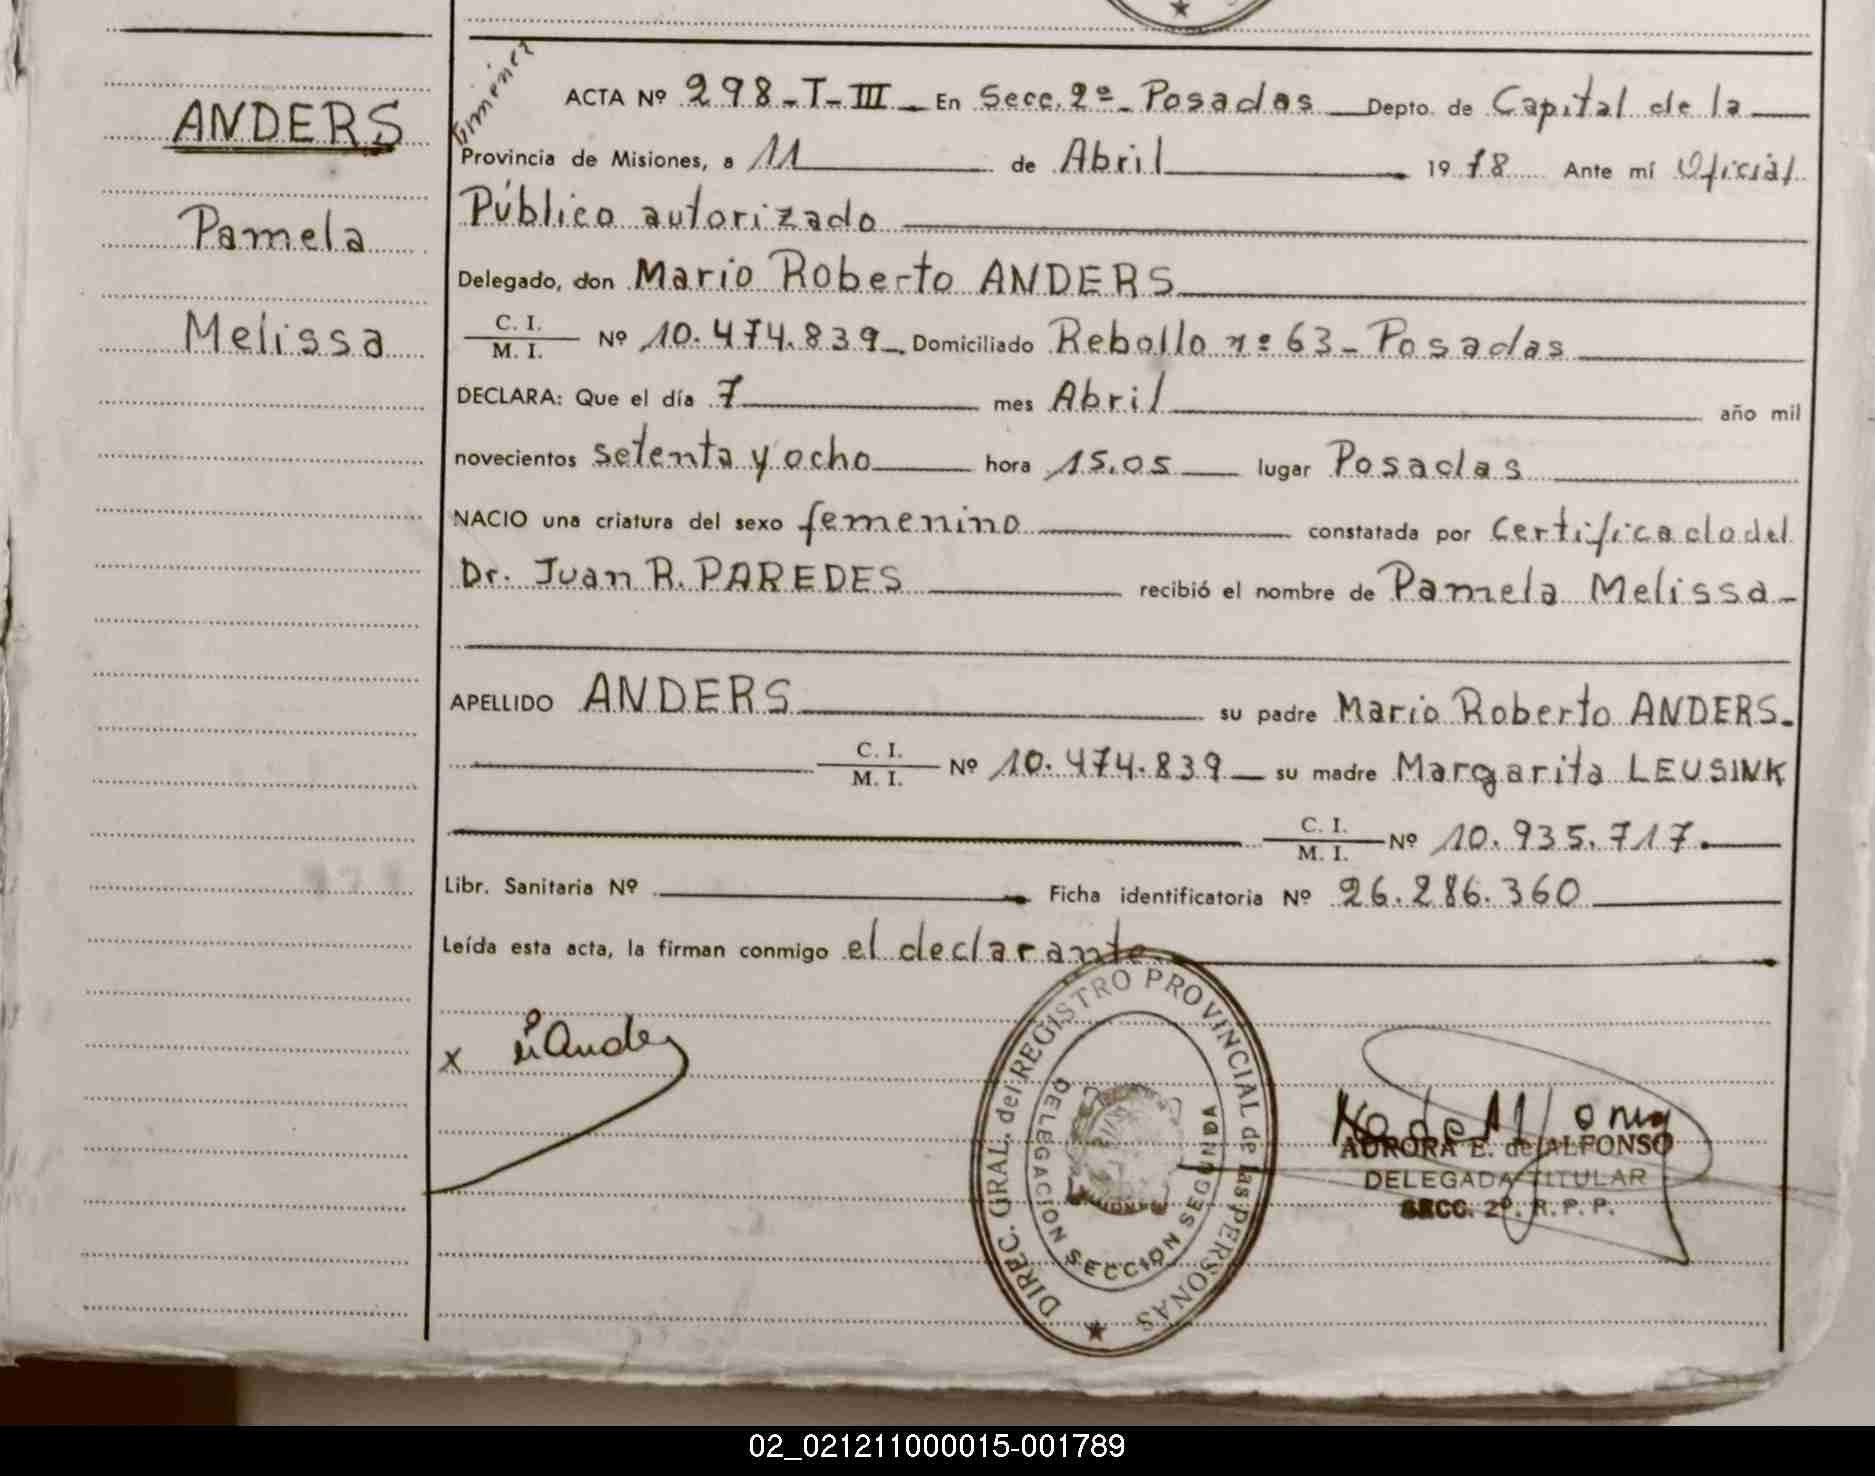 ANDERS
Pamela
Melissa
Gimenez
ACTA Nº 298-T-III- En Secc. 2ª- Posadas Depto. de Capital de la
Provincia de Misiones, a 11 de Abril 1978 Ante mí Oficial
Público autorizado
Delegado, don Mario Roberto ANDERS
C. I.
M. I. Nº 10.474.839- Domiciliado Rebollo nº 63- Posadas
DECLARA: Que el día 7 mes Abril año mil
novecientos setenta y ocho hora 15.05 lugar Posadas
NACIO una criatura del sexo femenino constatada por Certificado del
Dr. Juan R. PAREDES recibió el nombre de Pamela Melissa-
APELLIDO ANDERS su padre Mario Roberto ANDERS.
C. I.
M. I. Nº 10.474.839 su madre Margarita LEUSINK
C. I.
M. I. Nº 10.935.717.
Libr. Sanitaria Nº Ficha identificatoria Nº 26.286.360
Leída esta acta, la firman conmigo el declarante
X
DIREC. GRAL. del REGISTRO PROVINCIAL de las PERSONAS
DELEGACION SECCION SEGUNDA
MISIONES
AURORA E. de ALFONSO
DELEGADA TITULAR
SECC. 2ª. R. P. P.
02_021211000015-001789